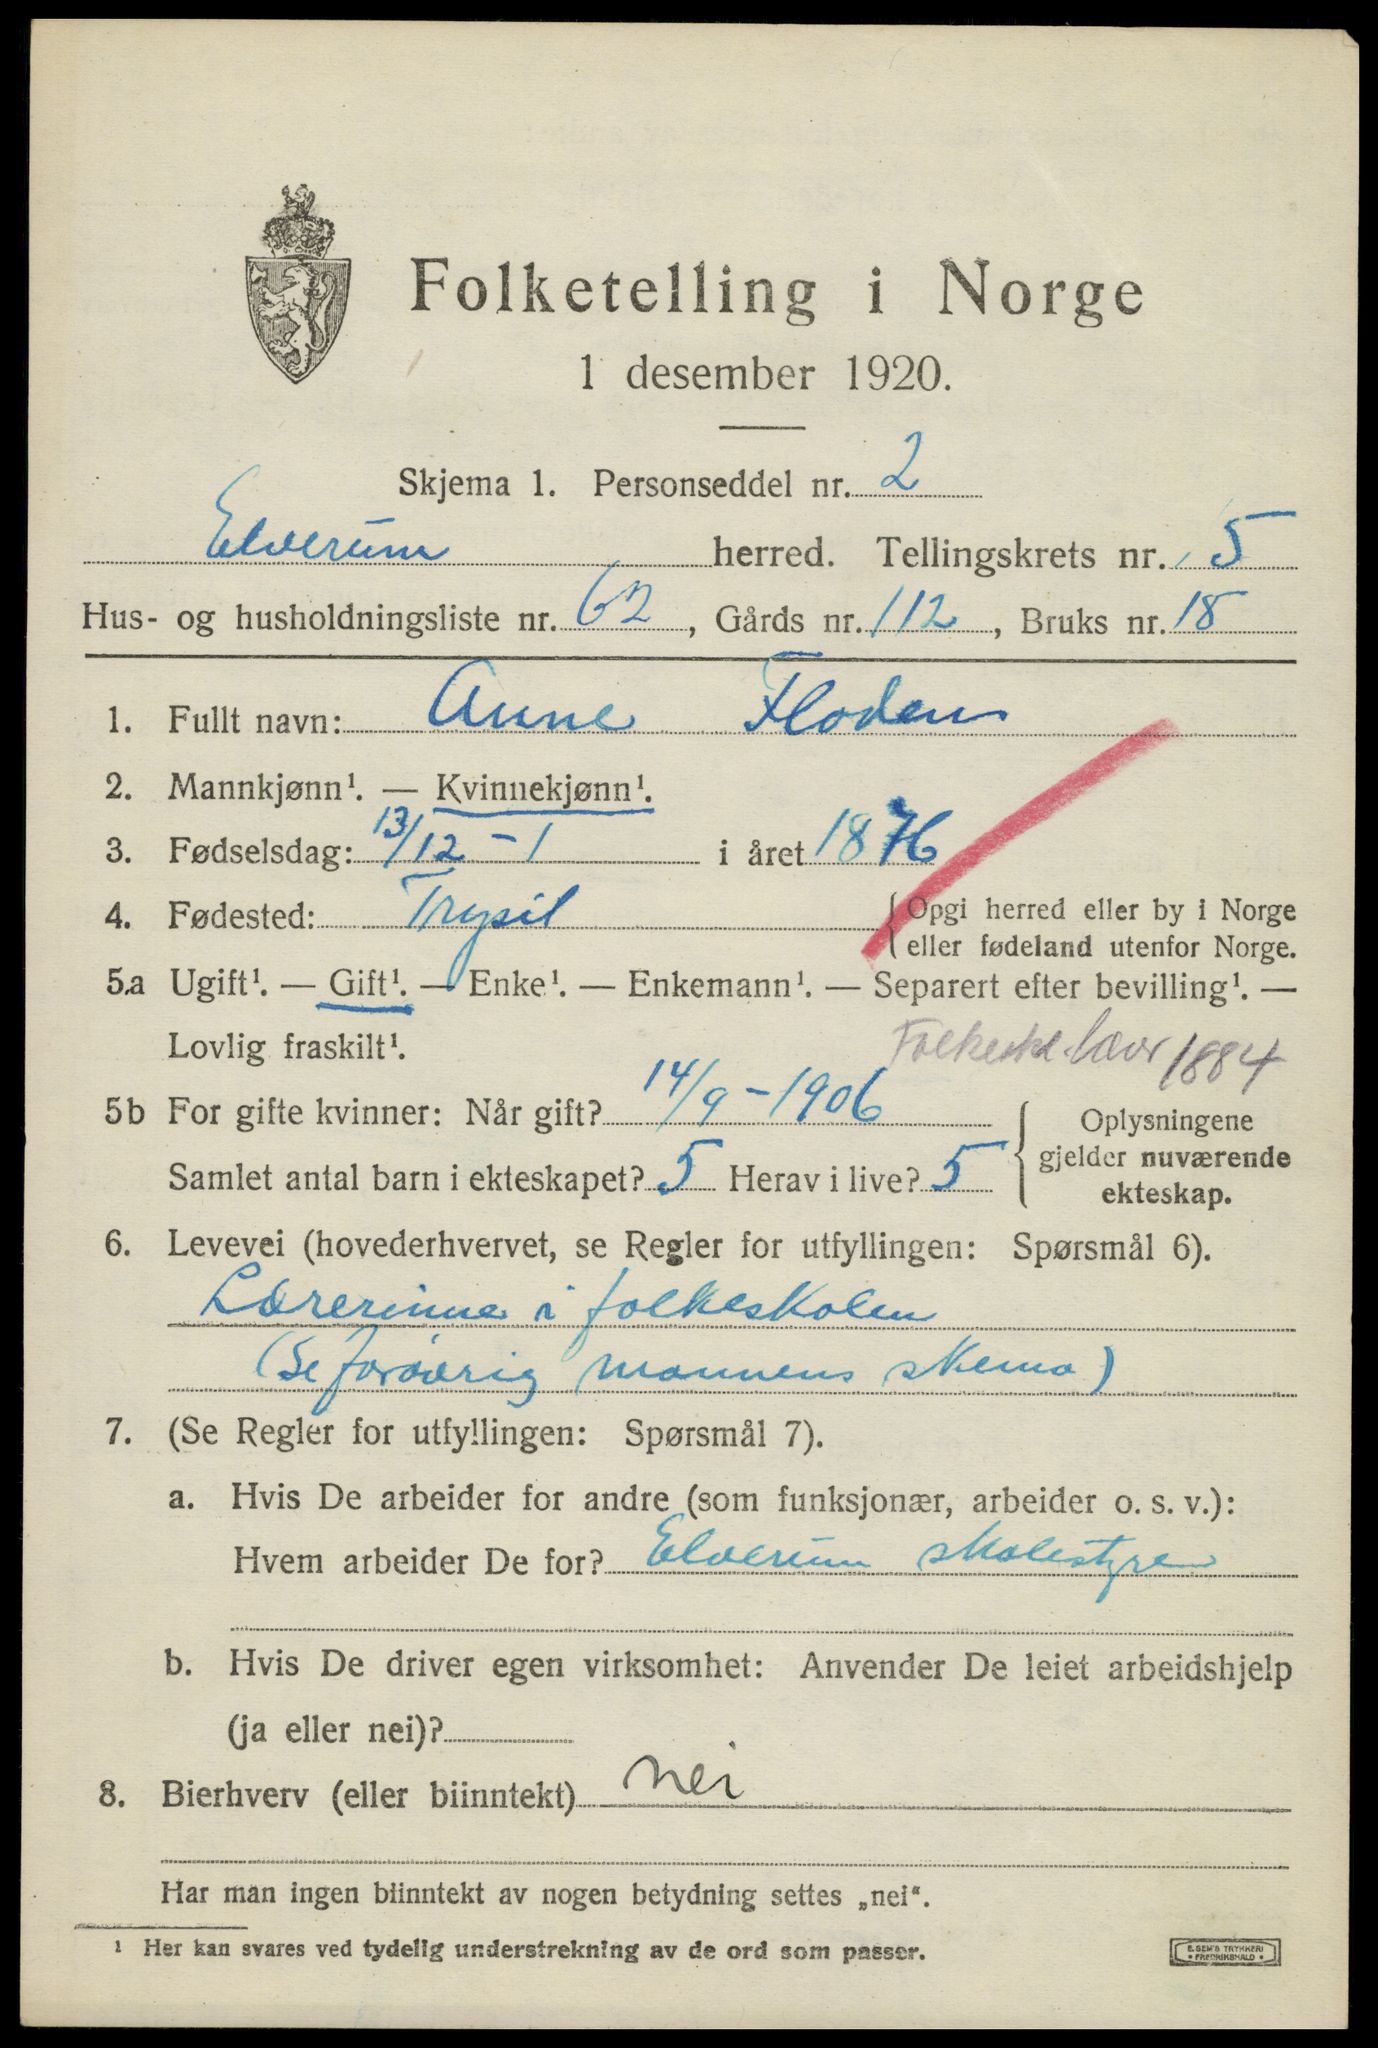 Folketelling i Norge
1 desember 1920.
Skjema 1. Personseddel nr. 2
Elverum herred. Tellingskrets nr. 5
Hus- og husholdningsliste nr. 62, Gårds nr. 112, Bruks nr. 18
1. Fullt navn: Anne Floden
2. Mannkjønn¹. — Kvinnekjønn¹.
3. Fødselsdag: 13/12 - 1 i året 1876
4. Fødested: Trysil {Opgi herred eller by i Norge
eller fødeland utenfor Norge.
5.a Ugift¹. — Gift¹. — Enke¹. — Enkemann¹. — Separert efter bevilling¹. —
Lovlig fraskilt¹.
Folkeskl. lær 1884
5b For gifte kvinner: Når gift? 14/9 - 1906
Samlet antal barn i ekteskapet? 5 Herav i live? 5
{ Oplysningene
gjelder nuværende
ekteskap.
6. Levevei (hovederhvervet, se Regler for utfyllingen: Spørsmål 6).
Lærerinne i folkeskolen
(Se forøvrig mannens skema)
7. (Se Regler for utfyllingen: Spørsmål 7).
a. Hvis De arbeider for andre (som funksjonær, arbeider o. s. v.):
Hvem arbeider De for? Elverum skolestyre
b. Hvis De driver egen virksomhet: Anvender De leiet arbeidshjelp
(ja eller nei)?
8. Bierhverv (eller biinntekt) nei
Har man ingen biinntekt av nogen betydning settes „nei“.
¹ Her kan svares ved tydelig understrekning av de ord som passer.
E. SEM'S TRYKKERI
• FREDRIKSHALD •